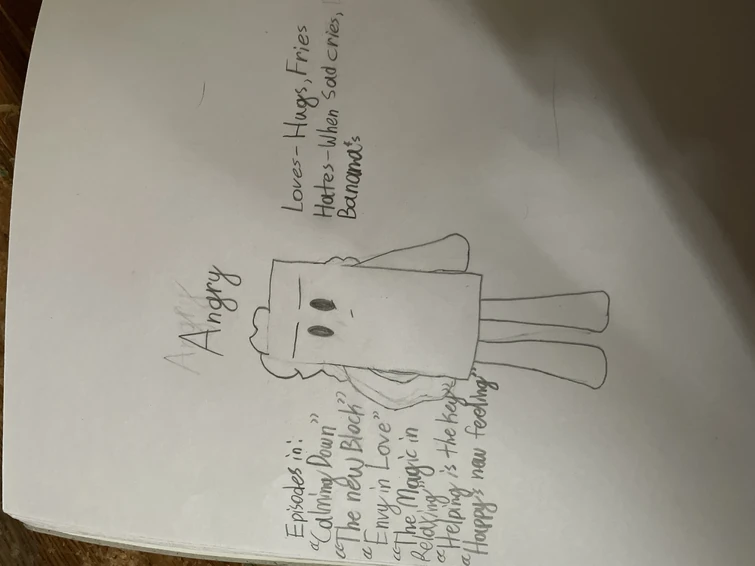 Angry
Angry
Loves-Hugs, Fries
Hates-When Sad cries,
Banana's
Episodes in:
"Calming Down"
"The new Block"
"Envy in Love"
"The Magic in
Relaxing"
"Helping is the key"
"Happy's new feeling"